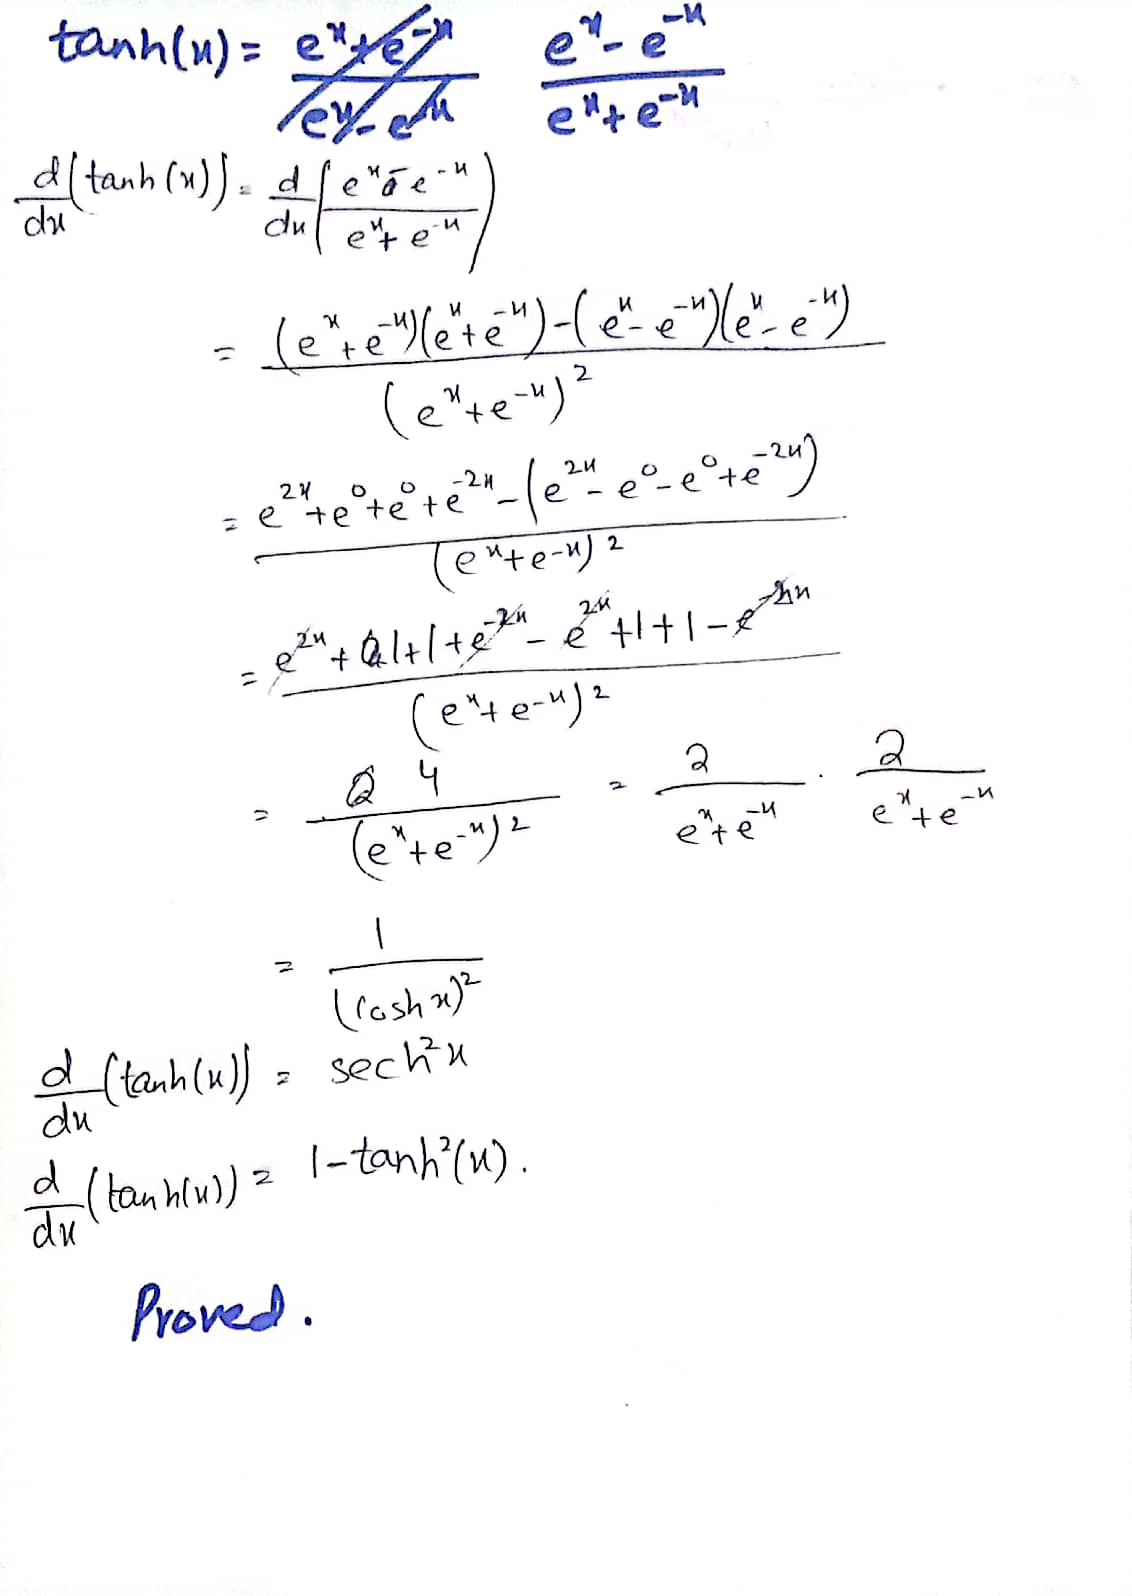 tanh(x) = (e^x + e^-x)/(e^x - e^-x) (e^x - e^-x)/(e^x + e^-x)
d/dx (tanh(x)) = d/dx ((e^x - e^-x)/(e^x + e^-x))
= ((e^x + e^-x)(e^x + e^-x) - (e^x - e^-x)(e^x - e^-x))/(e^x + e^-x)^2
= (e^2x + e^0 + e^0 + e^-2x - (e^2x - e^0 - e^0 + e^-2x))/(e^x + e^-x)^2
= (e^2x + 1 + 1 + e^-2x - e^2x + 1 + 1 - e^-2x)/(e^x + e^-x)^2
= 4/(e^x + e^-x)^2 = 2/(e^x + e^-x) . 2/(e^x + e^-x)
= 1/(cosh x)^2
d/dx (tanh(x)) = sech^2 x
d/dx (tanh(x)) = 1 - tanh^2(x).
Proved.